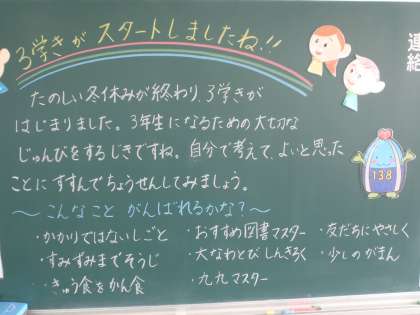 3学きが スタートしましたね!!
連絡
たのしい冬休みが終わり、3学きが
はじまりました。3年生になるための大切な
じゅんびをするじきですね。自分で考えて、よいと思った
ことにすすんでちょうせんしてみましょう。
～こんなこと がんばれるかな?～
・かかりではないしごと
・すみずみまでそうじ
・きゅう食をかん食
・おすすめ図書マスター
・大なわとびしんきろく
・九九マスター
・友だちにやさしく
・少しのがまん
138